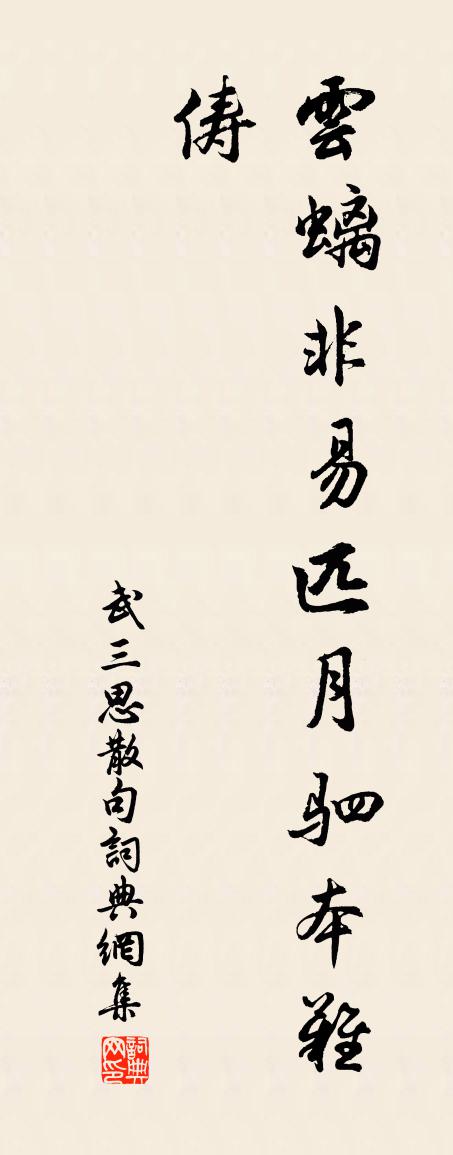 雲螭非易匹月駟本難
儔
武三思散句詞典網集
詞典
网印